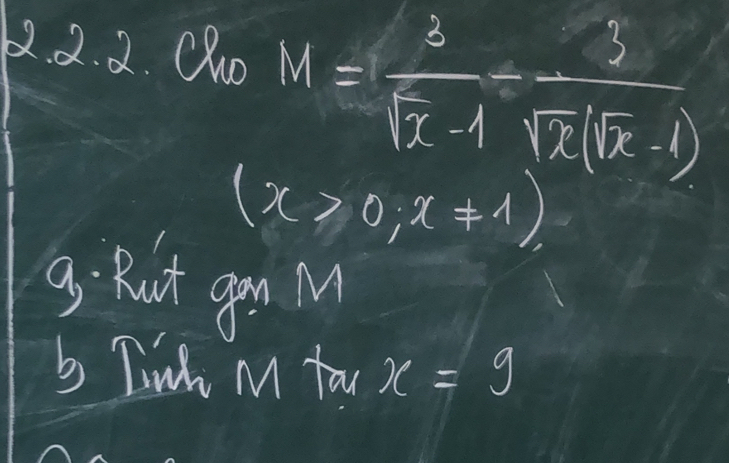 2.2.2. Cho M = 3/(√x - 1) - 3/(√x(√x - 1))
(x > 0; x ≠ 1)
a, Rút gọn M
b, Tính M tại x = 9